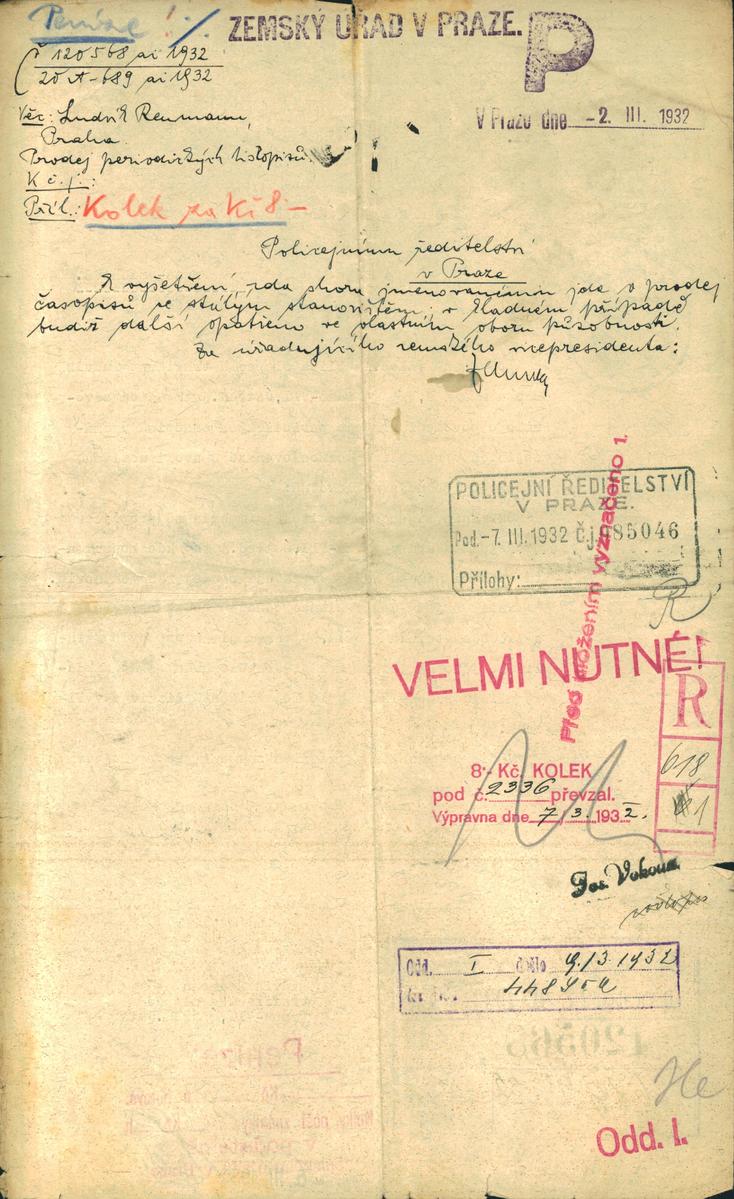 Peníze!
ZEMSKÝ ÚŘAD V PRAZE.
P
č 120568 ai 1932
20 A-689 ai 1932
V Praze dne -2. III. 1932
Věc: Ludvík Neumann,
Praha.
Prodej periodických tiskopisů.
K č. j.:
Příl.: Kolek za Kč 8.-
Policejnímu ředitelství
v Praze
K vyšetření, zda shora jmenovanému jde o prodej
časopisů se stálým stanovištěm, v kladném případě
budiž další opatřeno ve vlastním oboru působnosti.
Za úřadujícího zemského vicepresidenta:
POLICEJNÍ ŘEDITELSTVÍ
V PRAZE.
Pod. -7. III. 1932 Č.j. 085046
Přílohy:
R
Před vyznačeno 1.
VELMI NUTNÉ!
R
618
1
8·- Kč. KOLEK
pod č. 2336 převzal.
Výpravna dne 7./3. 1932.
Jos. Vokoun
Odd. I došlo 9./3. 1932
Odd. I.